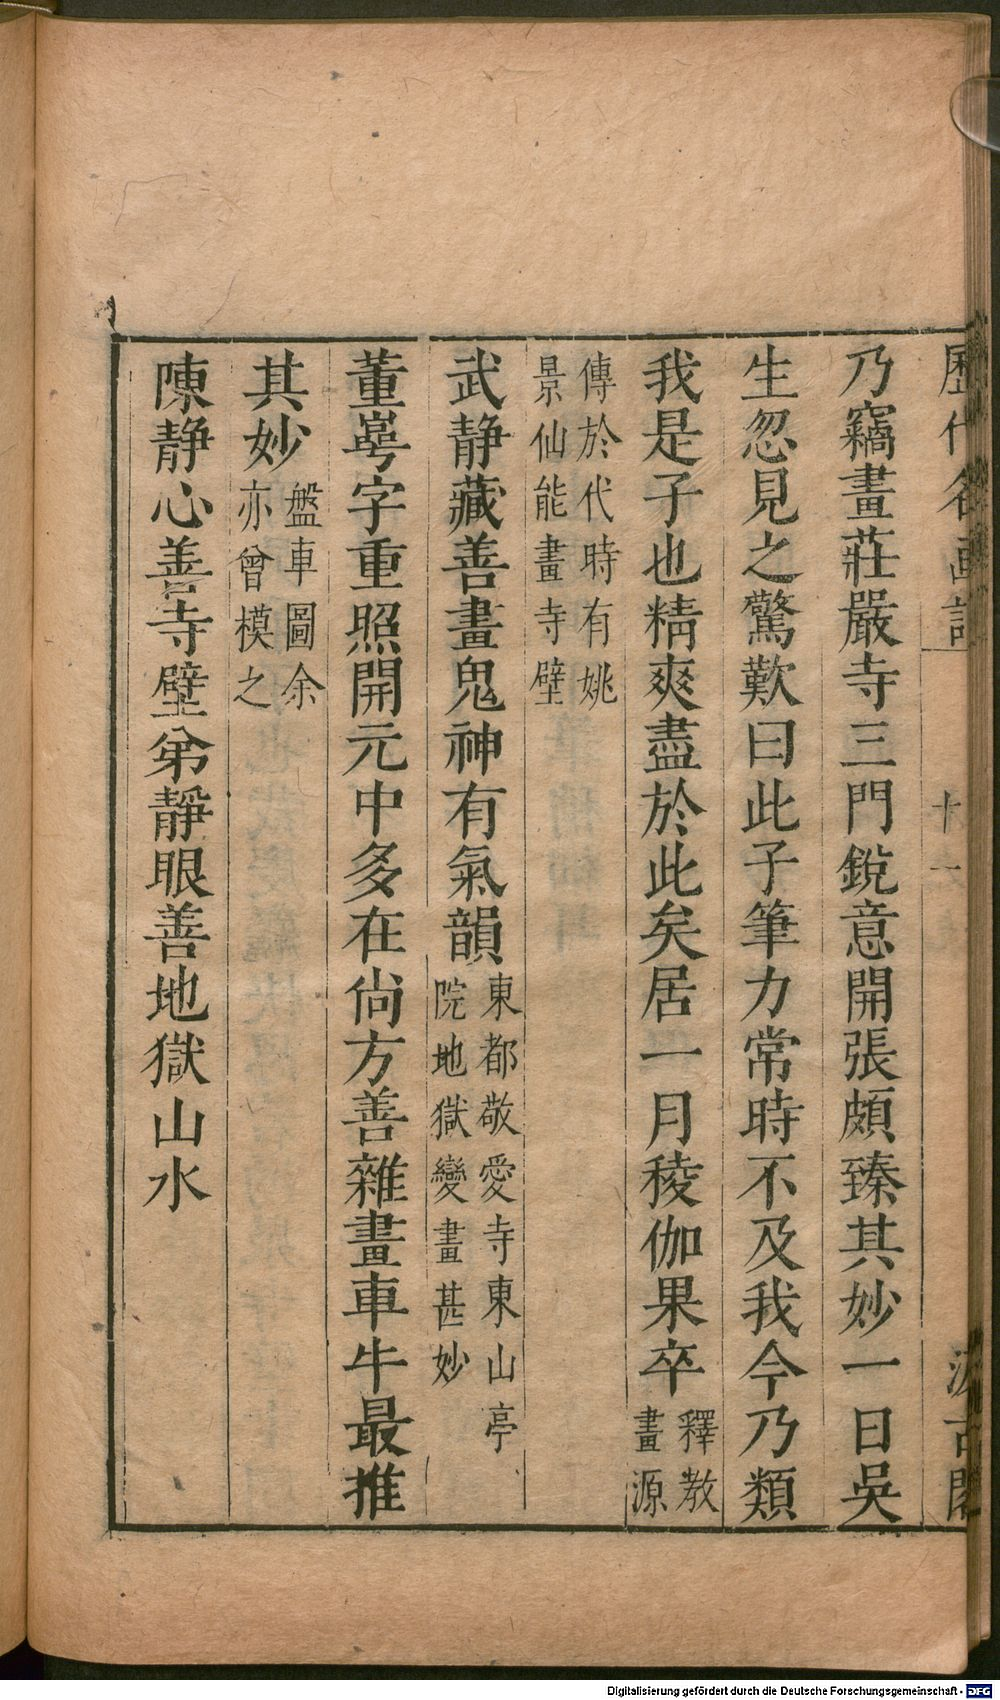 歷代名畫記
十一
汲古閣
乃竊畫莊嚴寺三門銳意開張頗臻其妙一日吳
生忽見之驚歎曰此子筆力常時不及我今乃類
我是子也精爽盡於此矣居一月稜伽果卒釋教畫源
傳於代時有姚
景仙能畫寺壁
武静藏善畫鬼神有氣韻東都敬愛寺東山亭院地獄變畫甚妙
董㟧字重照開元中多在尙方善雜畫車牛最推
其妙盤車圖余亦曾模之
陳静心善寺壁弟靜眼善地獄山水
Digitalisierung gefördert durch die Deutsche Forschungsgemeinschaft - DFG